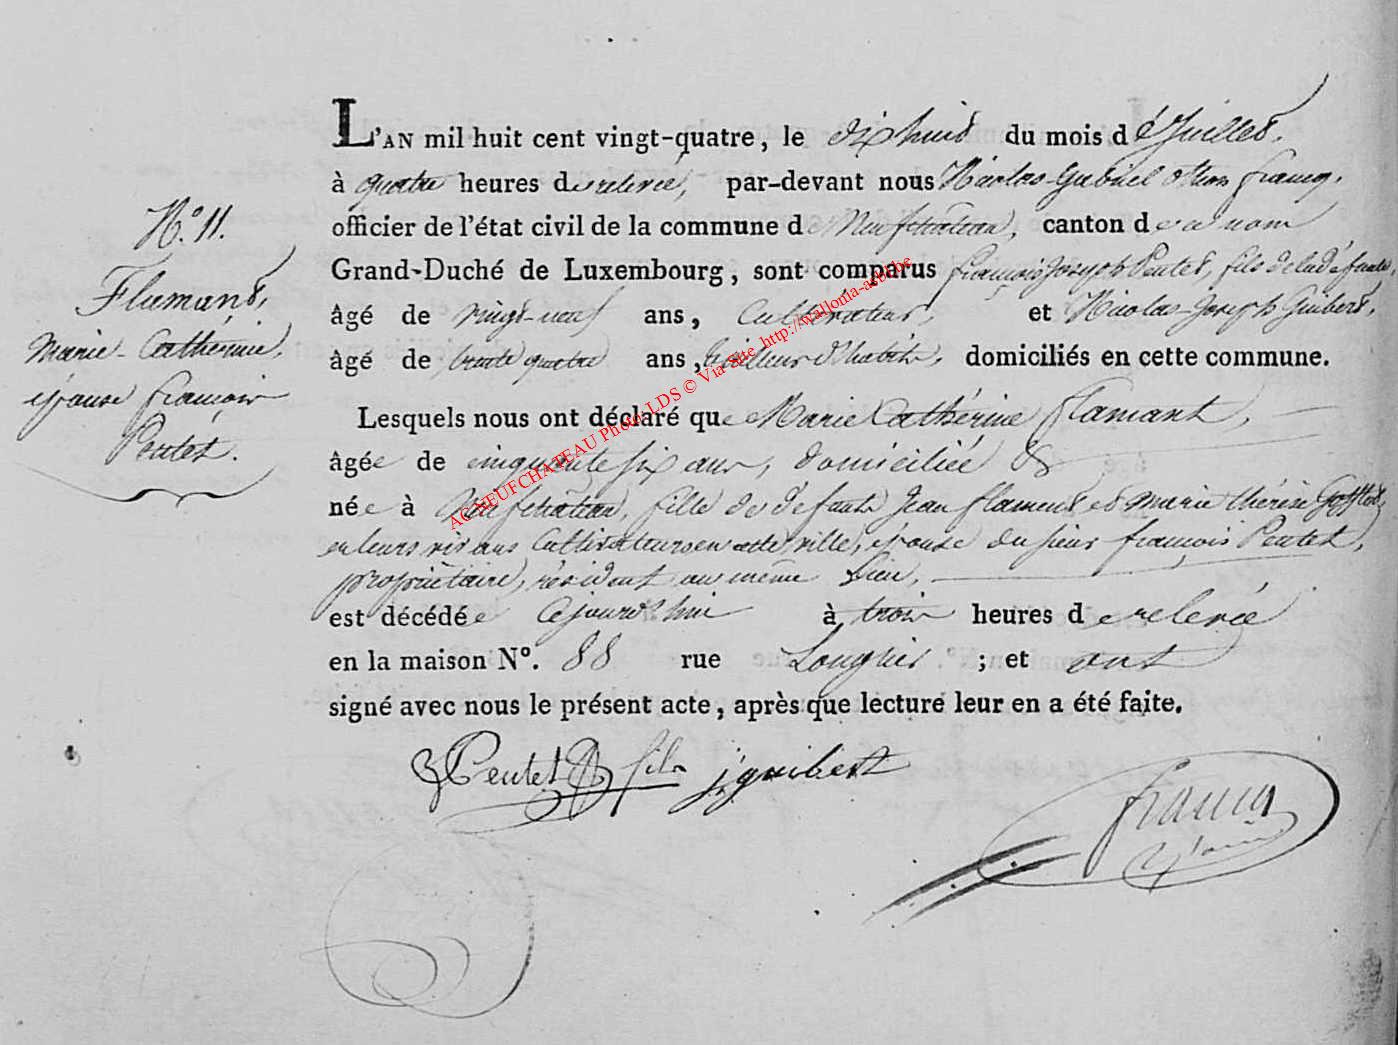 L'AN mil huit cent vingt-quatre, le dix huit du mois de Juillet,
à quatre heures de relevée, par-devant nous Nicolas-Gabriel Francq,
officier de l'état civil de la commune de Neufchâteau, canton de ce nom
Grand-Duché de Luxembourg, sont comparus françois Joseph Pentet, fils de la défunte,
âgé de vingt-neuf ans, Cultivateur, et Nicolas-Joseph Guibert,
âgé de trente quatre ans, tailleur d'habits, domiciliés en cette commune.
N.º 11.
Flamant,
Marie-Cathérine,
épouse françois
Pentet.
Lesquels nous ont déclaré que Marie Cathérine Flamant,
âgée de cinquante six ans, domiciliée &
née à Neufchâteau, fille de défunts Jean flament et Marie thérèse Gofflot,
en leurs vivans Cultivateurs en cette ville, épouse du sieur françois Pentet,
propriétaire, résident au même lieu,
est décédée cejourd'hui à trois heures de relevée
en la maison N°. 88 rue ; et ont
signé avec nous le présent acte, après que lecture leur en a été faite.
Pentet fils jguibert
francq
AC NEUFCHATEAU Photo: LDS © Via Site http://wallonia-asbl.be